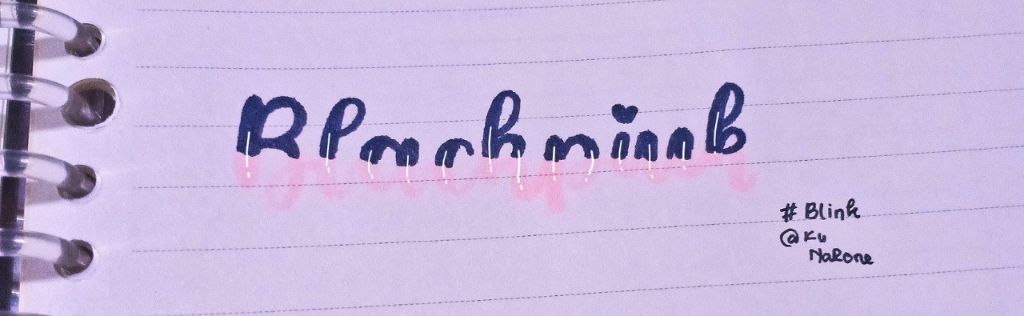 Blackpink
#Blink
@Ku
NaRone